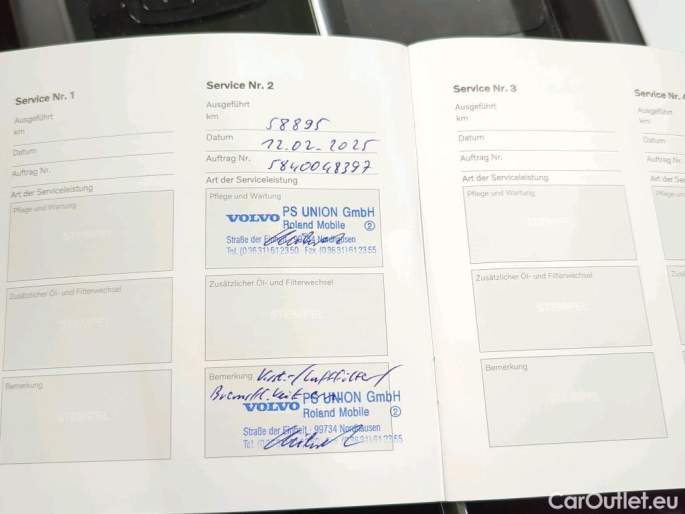 Service Nr. 1
Ausgeführt
km
Datum
Auftrag Nr.
Art der Serviceleistung
Pflege und Wartung
Zusätzlicher Öl- und Filterwechsel
STEMPEL
Bemerkung
Service Nr. 2
Ausgeführt
km 58895
Datum 12.02.2025
Auftrag Nr. 5840048397
Art der Serviceleistung
Pflege und Wartung
VOLVO PS UNION GmbH
Roland Mobile 2
Straße der Einheit 99734 Nordhausen
Tel. (03631) 612350 Fax (03631) 612355
Zusätzlicher Öl- und Filterwechsel
STEMPEL
Bemerkung
VOLVO PS UNION GmbH
Roland Mobile 2
Straße der Einheit - 99734 Nordhausen
Service Nr. 3
Ausgeführt
km
Datum
Auftrag Nr.
Art der Serviceleistung
Pflege und Wartung
Zusätzlicher Öl- und Filterwechsel
STEMPEL
Bemerkung
Service Nr.
Ausgeführt
km
Datum
Auftrag Nr.
CarOutlet.eu